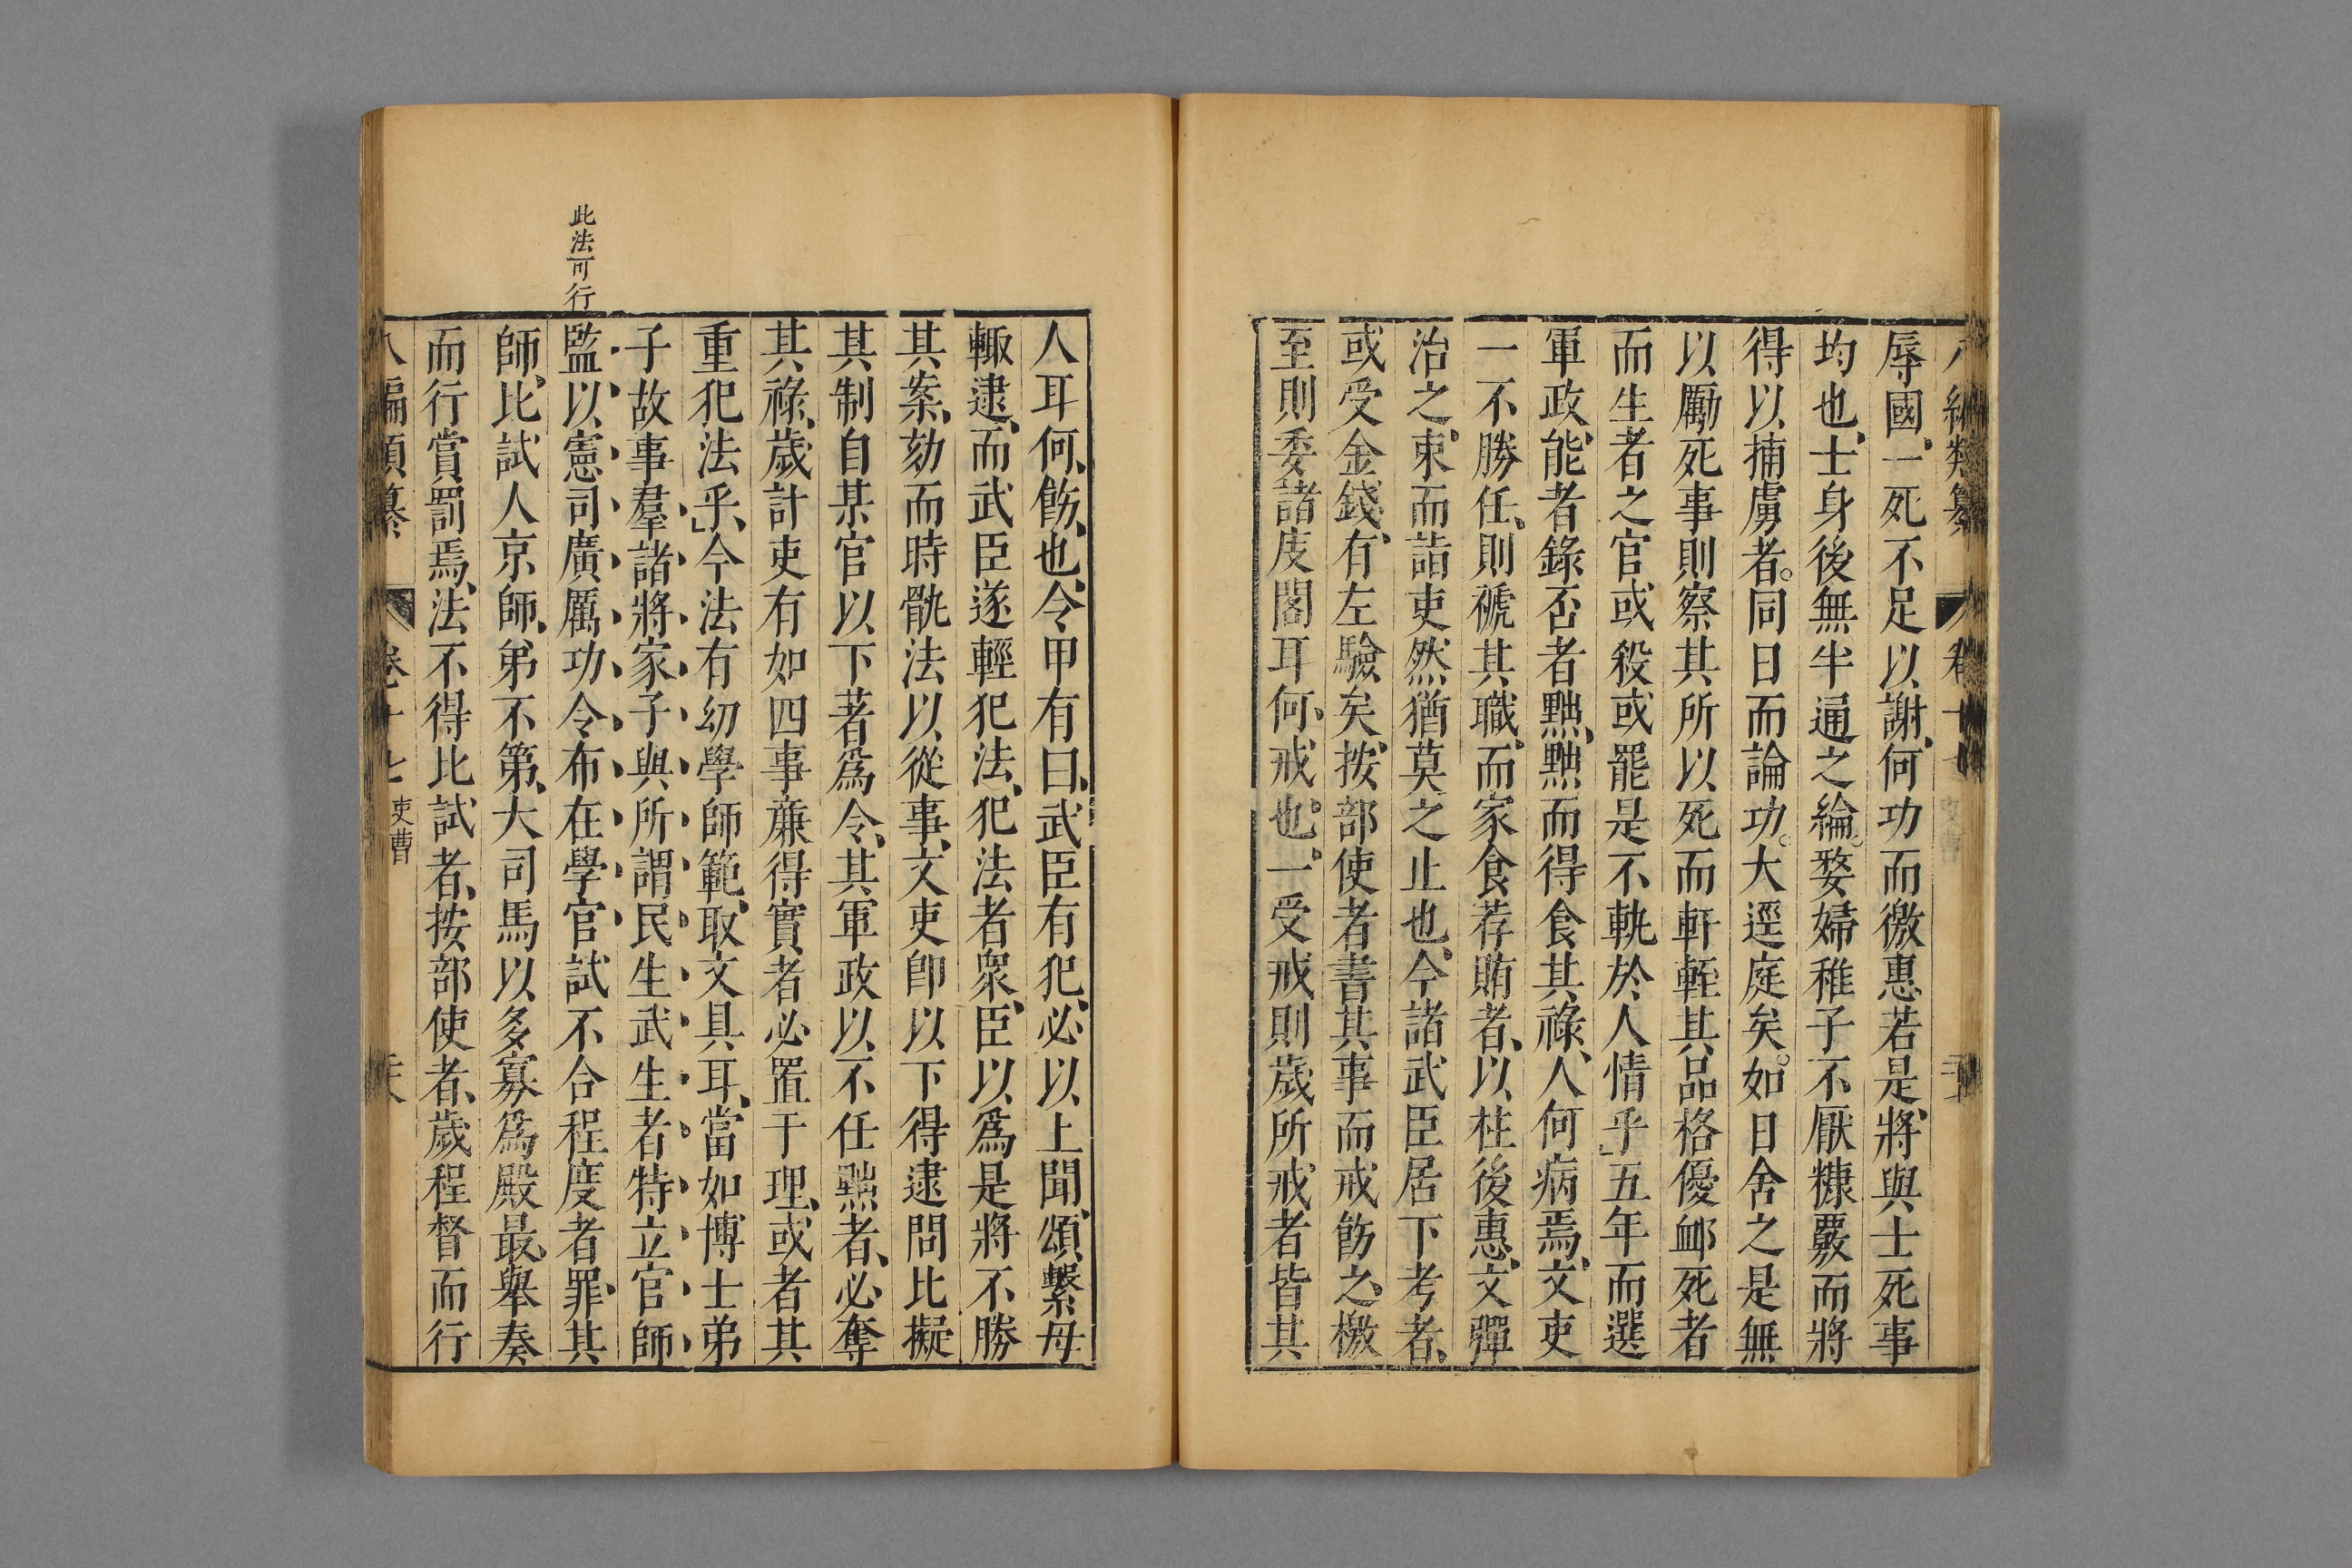 辱國一死不足以謝何功而徼惠若是將與士死事
均也士身後無半通之綸婺婦稚子不厭糠覈而將
得以捕虜者同日而論功大逕庭矣如曰舍之是無
以勵死事則察其所以死而軒輊其品格優衈死者
而生者之官或殺或罷是不軌於人情乎五年而選
軍政能者錄否者黜黜而得食其祿人何病焉文吏
一不勝任則褫其職而家食荐賄者以柱後惠文彈
治之束而詣吏然猶莫之止也今諸武臣居下考者
或受金錢有左驗矣按部使者書其事而戒飭之檄
至則委諸庋閣耳何戒也一受戒則歲所戒者皆其
人耳何飭也令甲有曰武臣有犯必以上聞頌繫毋
輙逮而武臣遂輕犯法犯法者衆臣以爲是將不勝
其案劾而時骫法以從事文吏卽以下得逮問比擬
其制自某官以下著爲令其軍政以不任黜者必奪
其祿歲計吏有如四事亷得實者必置于理或者其
重犯法乎今法有幼學師範取文具耳當如博士弟
子故事羣諸將家子與所謂民生武生者特立官師
監以憲司廣厲功令布在學官試不合程度者罪其
師比試人京師弟不第大司馬以多寡爲殿最舉奏
而行賞罰焉法不得比試者按部使者歲程督而行
此法可行
八編類纂 卷十七 吏曹